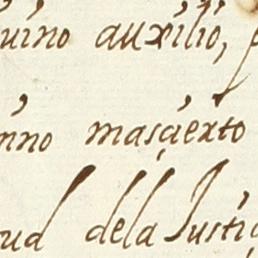 uino auxilio,
nno mascierto
ud dela Justi